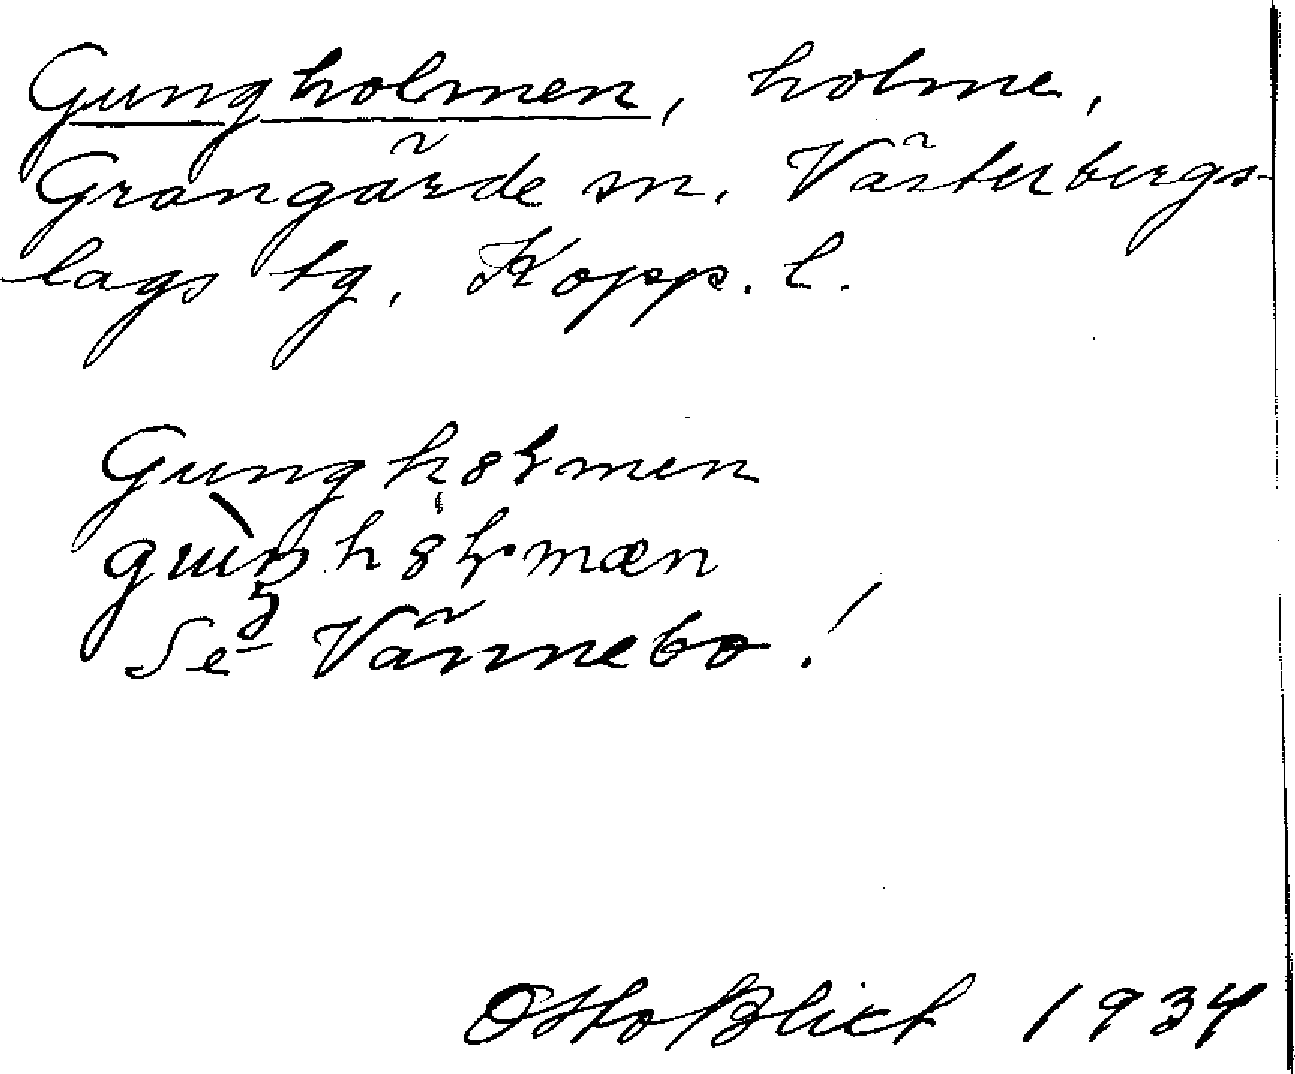 Gungholmen, holme,
Grangärde sn. Västerbergs-
lags tg, Kopp. l.
Gungh8ɽmen
Se Vännebo!
Otto Blixt 1934